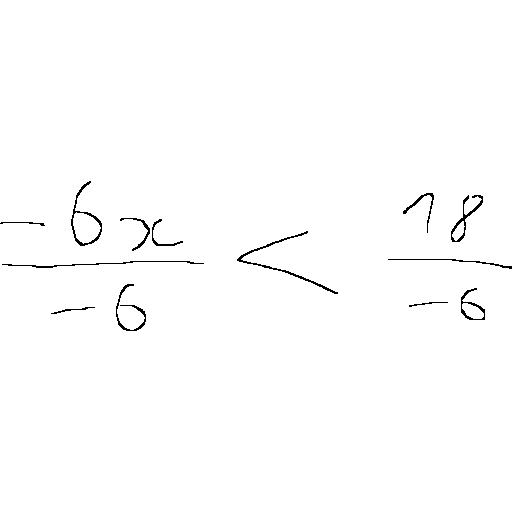 \frac{-6x}{-6} < \frac{18}{-6}